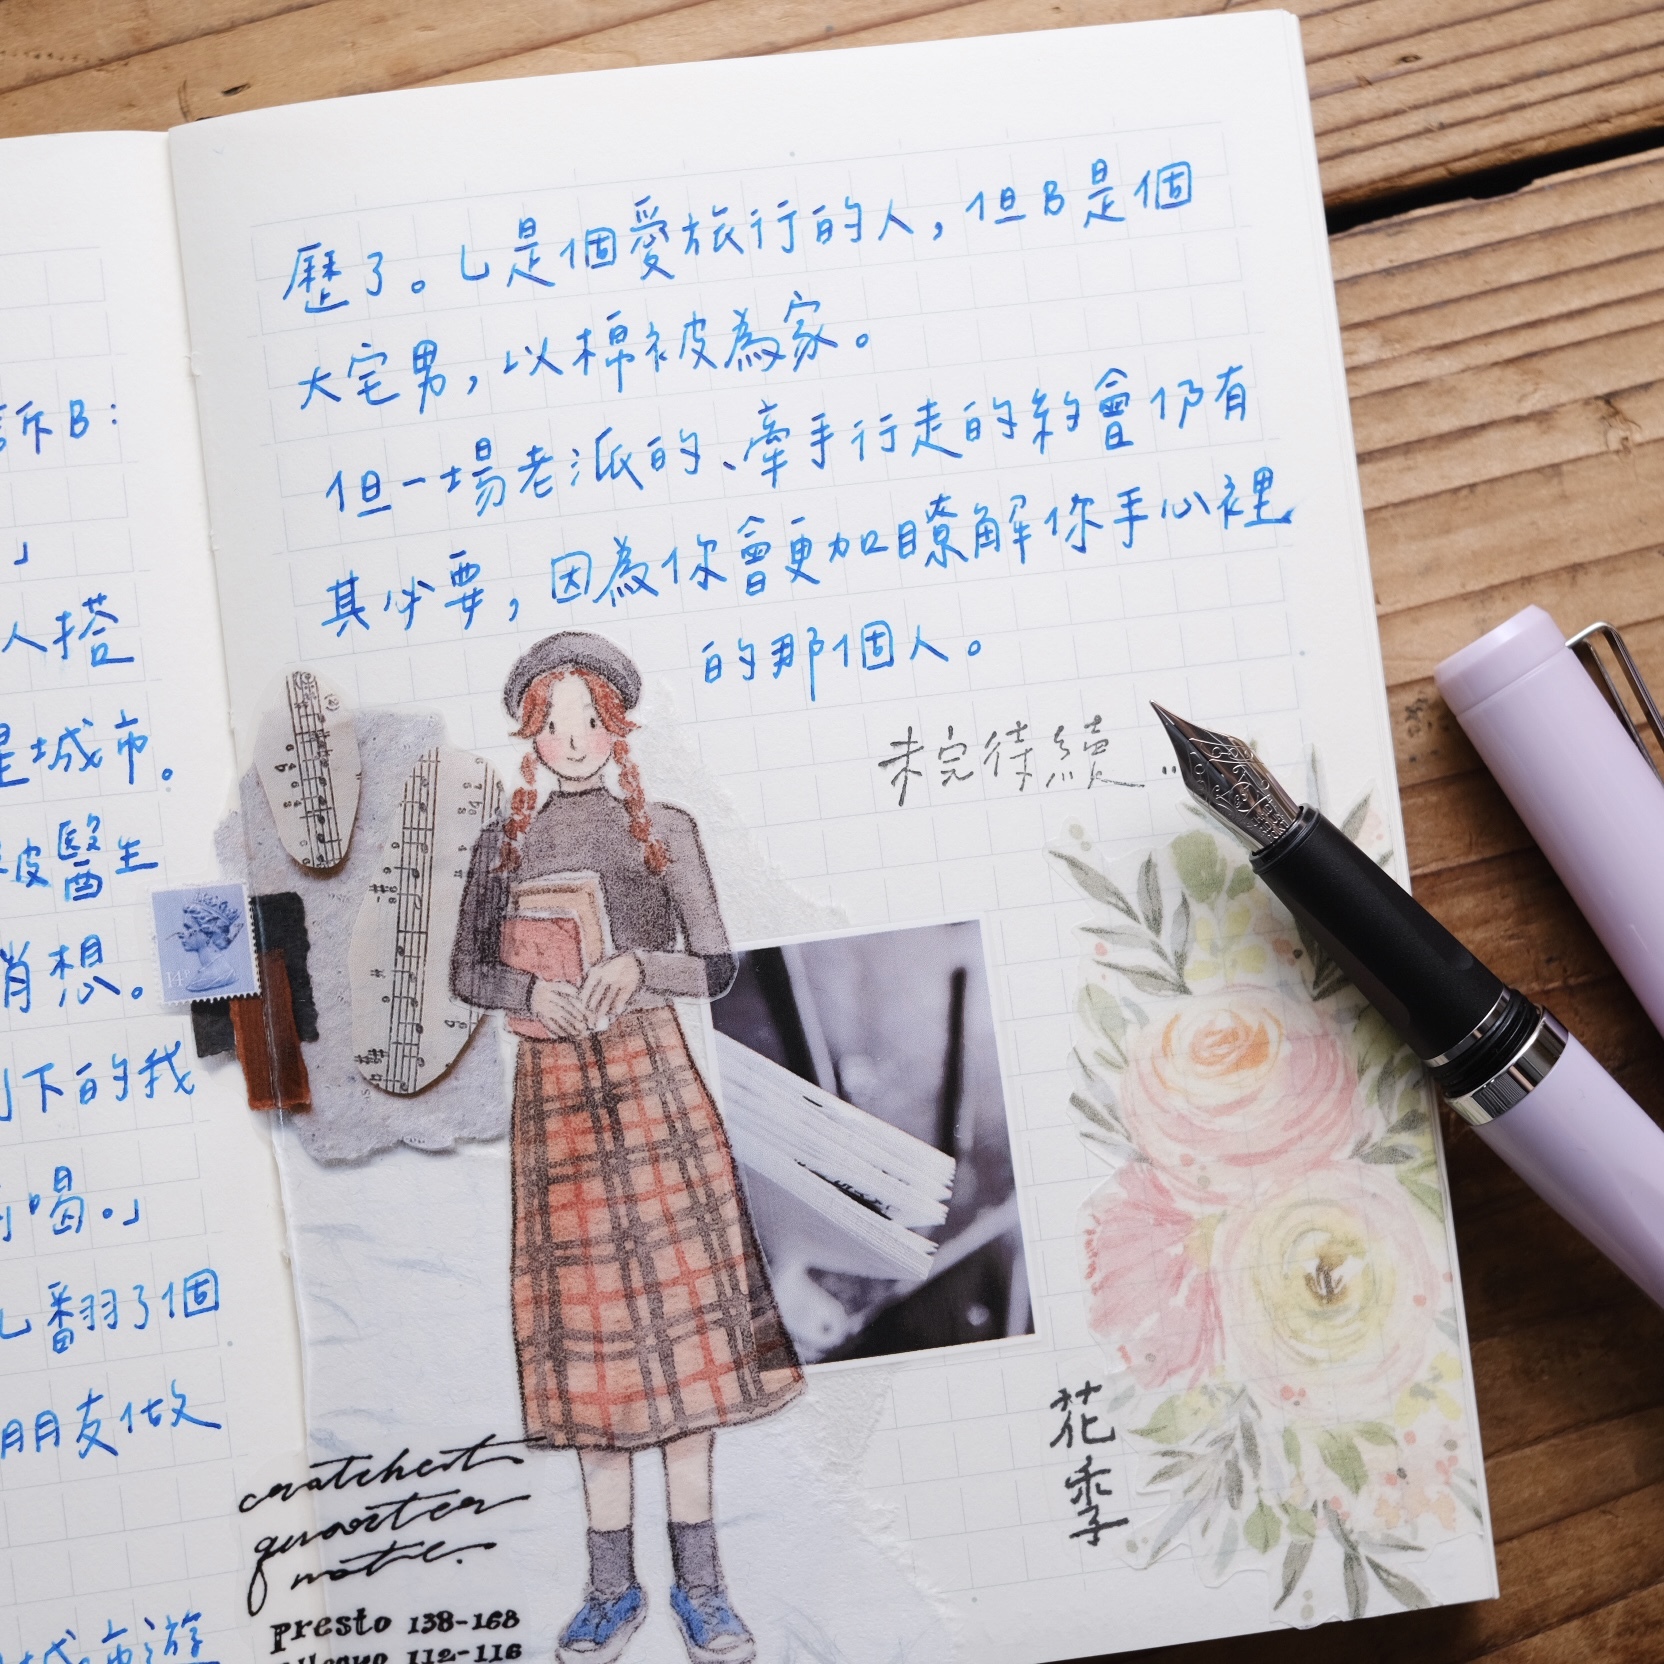 訴B：
」
人搭
是城市。
被醫生
肖想。
下的我
喝。」
乚翻了個
朋友做
城市遊
歷了。乚是個愛旅行的人，但B是個
大宅男，以棉被為家。
但一場老派的、牽手行走的約會仍有
其必要，因為你會更加瞭解你手心裡
的那個人。
未完待續…
14P
花季
cratchert
quarter
note.
presto 138-168
112-116